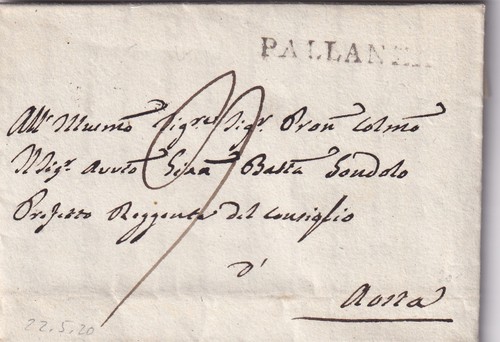 PALLANZA
All' Illusmo Sigre Sigr. Pron Colmo
Il Sigr. Avvto Basta Gondolo
Prefetto Reggente del Consiglio
d'
Aosta
22.5.20